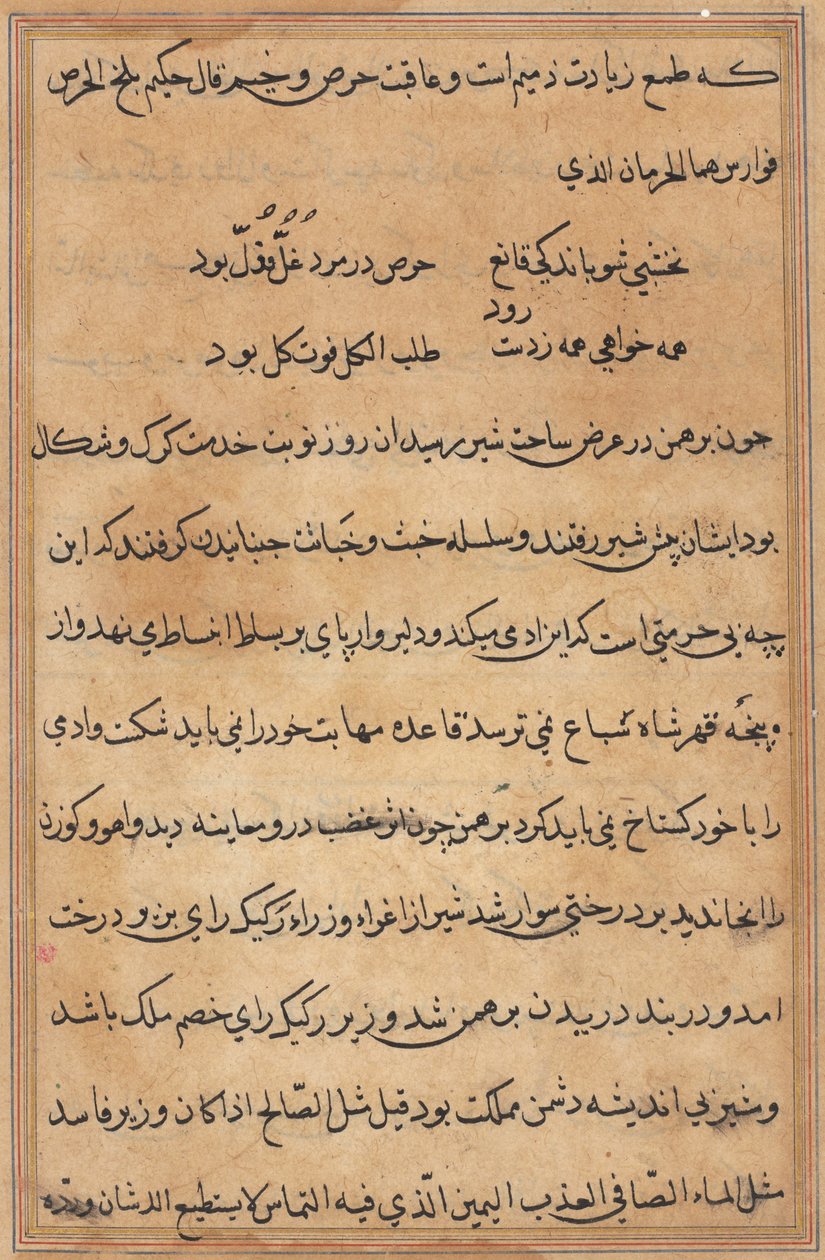 که طمع زیادت ذمیم است و عاقبت حرص وخیم قال حکیم بلخ الحرص
فوارس هما الحرمان الذي
نخشبي شو باندکی قانع حرص در مرد غلّ و ذلّ بود
همه خواهي همه زدست رود طلب الکل فوت کل بود
چون برهمن در عرض ساحت شیر رسید ان روز نوبت خدمت کرک و شکال
بود ایشان پیش شیر رفتند و سلسله خبث و خباثت جنبانیدن کرفتند که این
چه بي حرمتي است که این ادمي میکند و دلیروار پاي بر بساط انبساط مي نهد و از
پنجهٔ قهر شاه سباع نمي ترسد قاعده مهابت خود را نمي باید شکست و ادمي
را با خود کستاخ نمي باید کرد برهمن چون اثر غضب درو معاینه دید و اهو و کوزن
را انجا ندید بر درختي سوار شد شیر از اغراء وزراء رکیک راي بزیر درخت
امد و در بند دریدن برهمن شد وزیر رکیک راي خصم ملک باشد
و مشیر بي اندیشه دشمن مملکت بود قیل مثل الصّالح اذا کان وزیر فاسد
مثل الماء الصّافي العذب الیمین الّذي فیه التماس لا یستطیع الدشان ورّده